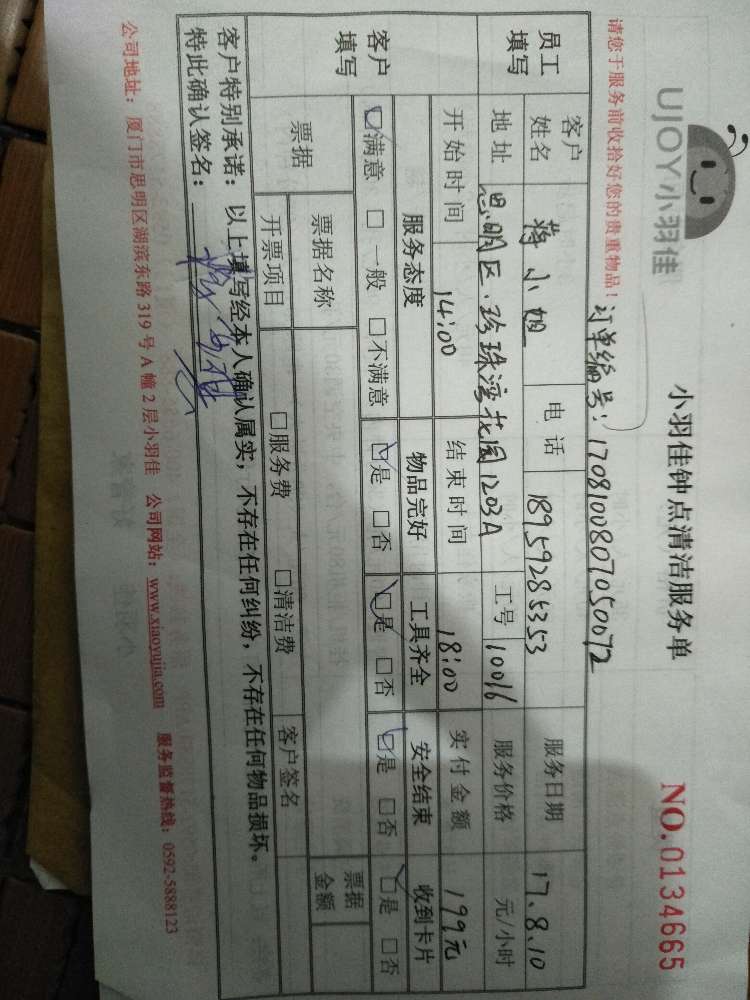 UJOY小羽佳
小羽佳钟点清洁服务单
NO.0134665
请您于服务前收拾好您的贵重物品！
订单编号：1708100807050072
员工填写
客户姓名 蒋小姐 电话 18959285353 服务日期 17.8.10
地址 思明区.珍珠湾花园1203A 工号 10016 服务价格 元/小时
开始时间 14:00 结束时间 18:00 实付金额 199元
客户填写
服务态度 物品完好 工具齐全 安全结束 收到卡片
☑满意 □一般 □不满意 ☑是 □否 ☑是 □否 ☑是 □否 ☑是 □否
票据 票据名称 票据金额
开票项目 □服务费 □清洁费 客户签名
客户特别承诺：以上填写经本人确认属实，不存在任何纠纷，不存在任何物品损坏。
特此确认签名：
公司地址：厦门市思明区湖滨东路319号A幢2层小羽佳 公司网站：www.xiaoyujia.com 服务监督热线：0592-5888123